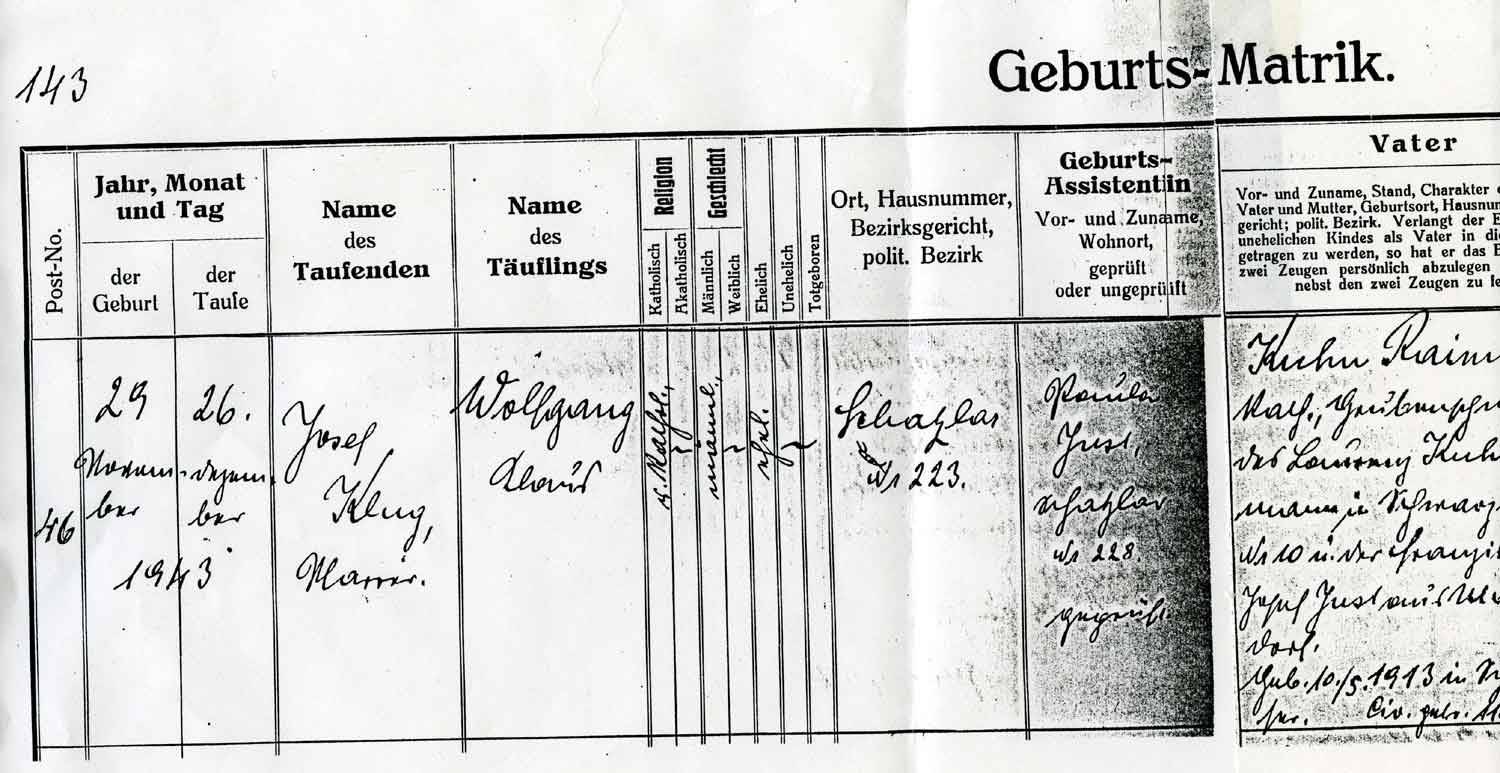 143
Geburts-Matrik.
Post-No.
Jahr, Monat
und Tag
der
Geburt
der
Taufe
Name
des
Taufenden
Name
des
Täuflings
Religion
Katholisch
Akatholisch
Geschlecht
Männlich
Weiblich
Ehelich
Unehelich
Totgeboren
Ort, Hausnummer,
Bezirksgericht,
polit. Bezirk
Geburts-
Assistentin
Vor- und Zuname,
Wohnort,
geprüft
oder ungeprüft
Vater
Vor- und Zuname, Stand, Charakter
Vater und Mutter, Geburtsort, Hausnum
gericht; polit. Bezirk. Verlangt der E
unehelichen Kindes als Vater in die
getragen zu werden, so hat er das E
zwei Zeugen persönlich abzulegen
nebst den zwei Zeugen zu
46
29
Novem-
ber
26.
dezem-
ber
1943
Josef
Klug,
Pfarrer.
Wolfgang
Klaus
kathol.,
männl.,
ehel.
Schatzlar
Nr 223.
Paula
Just,
Schatzlar
Nr 228.
geprüft.
Kuhn Raim
kath., Grubenschm
des Laurenz Kuh
mann in Schwarz
Nr 10 u. der Franzis
Josef Just aus
dorf.
Geb. 10./5. 1913 in
Civ. geb.